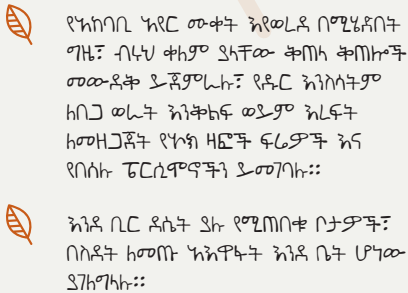 የአከባቢ አየር ሙቀት እየወረደ በሚሄድበት
ግዜ፣ ብሩህ ቀለም ያላቸው ቅጠላ ቅጠሎች
መውደቅ ይጀምራሉ፣ የዱር እንስሳትም
ለበጋ ወራት እንቅልፍ ወይም እረፍት
ለመዘጋጀት የሃክ ዛፎች ፍሬዎች እና
የበሰሉ ፔርሲሞኖችን ይመገባሉ።
እንደ ቢር ደሴት ያሉ የሚጠበቁ ቦታዎች፣
በስደት ለመጡ አእዋፋት እንደ ቤት ሆነው
ያገለግላሉ።